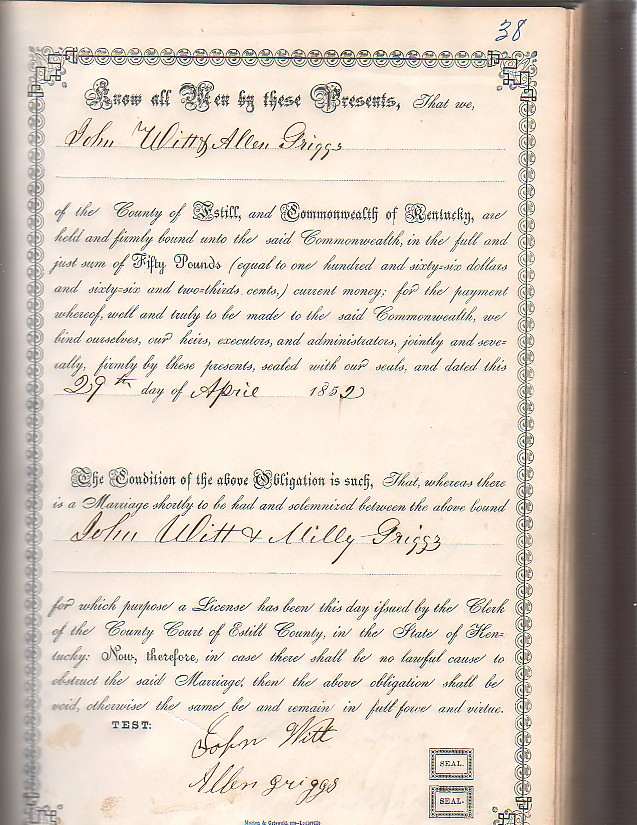 38
Know all Men by these Presents, That we,
John Witt & Allen Griggs
of the County of Estill, and Commonwealth of Kentucky, are
held and firmly bound unto the said Commonwealth, in the full and
just sum of Fifty Pounds (equal to one hundred and sixty-six dollars
and sixty-six and two-thirds cents,) current money; for the payment
whereof, well and truly to be made to the said Commonwealth, we
bind ourselves, our heirs, executors, and administrators, jointly and seve-
rally, firmly by these presents, sealed with our seals, and dated this
29th day of April 1852
The Condition of the above Obligation is such, That, whereas there
is a Marriage shortly to be had and solemnized between the above bound
John Witt & Milly Griggs
for which purpose a License has been this day issued by the Clerk
of the County Court of Estill County, in the State of Ken-
tucky: Now, therefore, in case there shall be no lawful cause to
obstruct the said Marriage, then the above obligation shall be
void, otherwise the same be and remain in full force and virtue.
TEST:
John Witt
SEAL.
Allen griggs
SEAL.